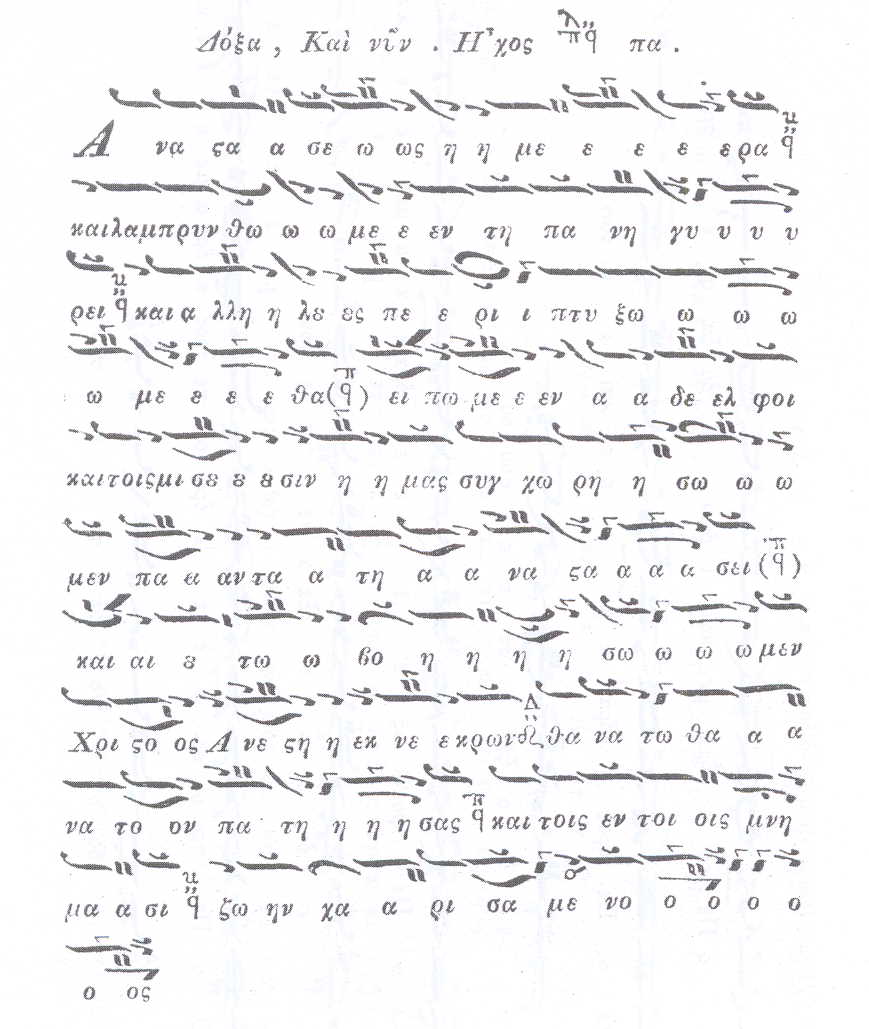 Δόξα , Καὶ νῦν . Ἦχος πα .
Α να ϛα α σε ω ως η η με ε ε ε ε ρα
και λαμπρυν θω ω ω με ε εν τη πα νη γυ υ υ υ
ρει και α λλη η λε ες πε ε ρι ι πτυ ξω ω ω ω
ω με ε ε ε θα ( ) ει πω με ε εν α α δε ελ φοι
και τοις μι σε ε ε σιν η η μας συγ χω ρη η σω ω ω
μεν πα α αν τα α τη α α να ϛα α α α σει ( )
και αι ε τω ω βο η η η η σω ω ω ω μεν
Χρι ϛο ος Α νε ϛη η εκ νε ε κρων θα να τω θα α α
να το ον πα τη η η η σας και τοις εν τοι οις μνη
μα α σι ζω ην χα α ρι σα με νο ο ο ο ο
ο ος